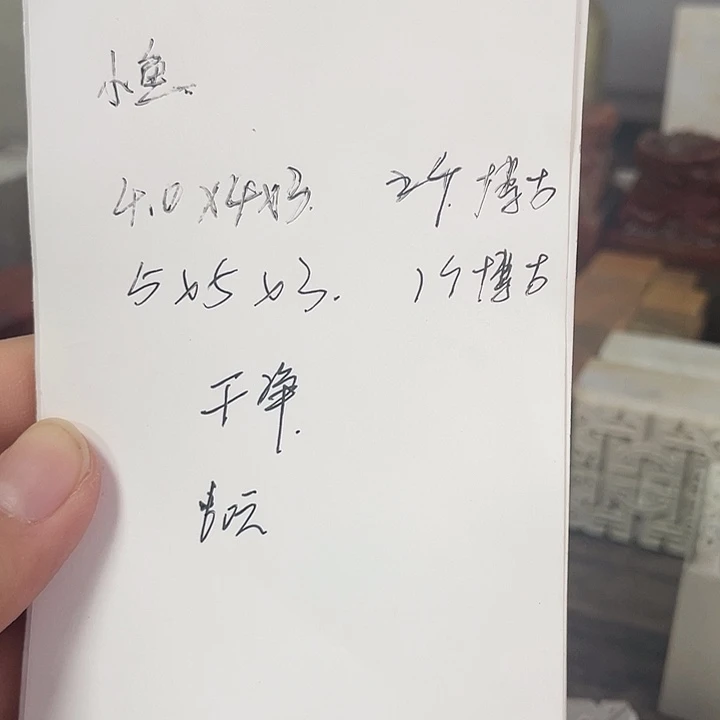 小鱼.
4.0×4×3. 2个 博古
5×5×3. 1个 博古
干净.